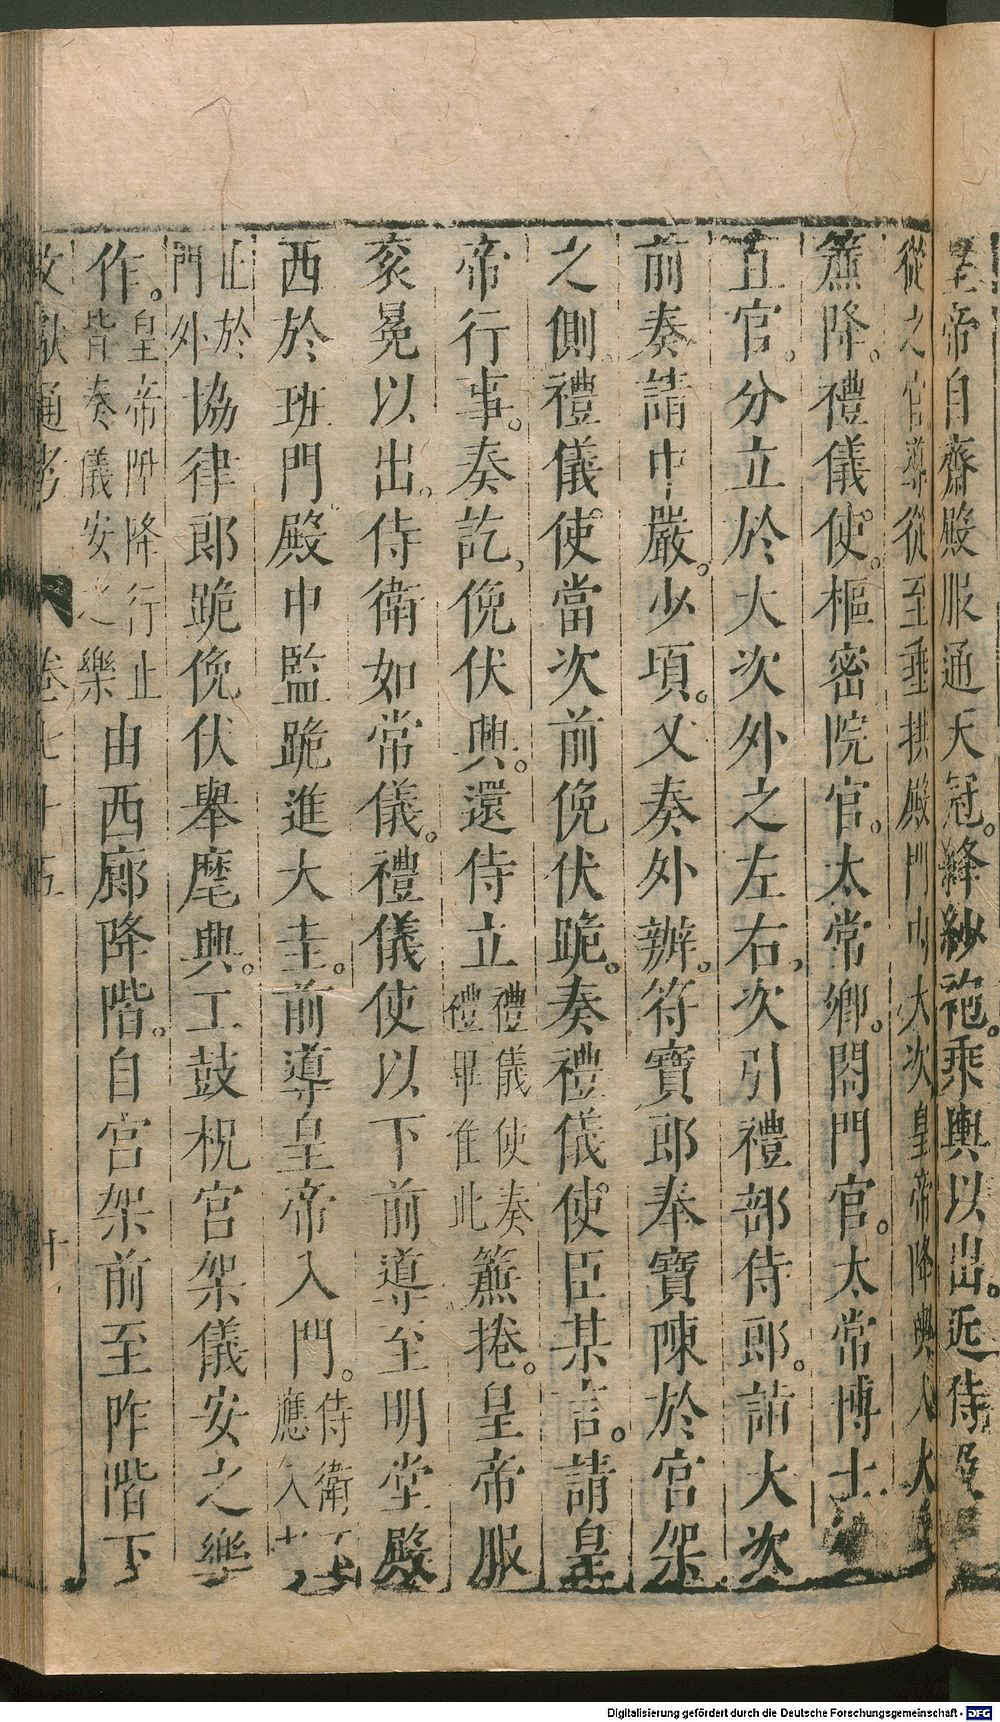 皇帝自齋殿服通天冠。絳紗袍。乘輿以出。近侍及
從之官導從至垂拱殿門內大次皇帝降輿入大
簾降。禮儀使。樞密院官。太常卿。閤門官。太常博士
直官。分立於大次外之左右，次引禮部侍郎。詣大次
前奏請中嚴。少頃。又奏外辦。符寶郎奉寶陳於宮架
之側。禮儀使當次前俛伏跪。奏禮儀使臣某言。請皇
帝行事。奏訖，俛伏興。還侍立
禮儀使奏
禮畢准此
簾捲。皇帝服
袞冕以出。侍衛如常儀。禮儀使以下前導至明堂殿
西於班門。殿中監跪進大圭。前導皇帝入門。
侍衛不
應入者
止於
門外
協律郎跪俛伏舉麾興。工鼓柷宮架儀安之樂
作。
皇帝陞降行止
皆奏儀安之樂
由西廊降階。自宮架前至阼階下
文獻通考 卷七十五 十
Digitalisierung gefördert durch die Deutsche Forschungsgemeinschaft - DFG